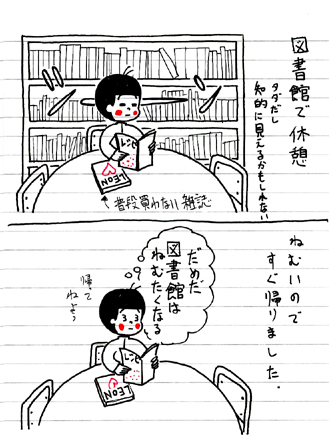 図書館で休憩
タダだし
知的に見えるかもしれない
レシピ
LEON
普段買わない雑誌
ねむいので
すぐ帰りました.
だめだ
図書館は
ねむたくなる
帰って
ねよう
レシピ
LEON